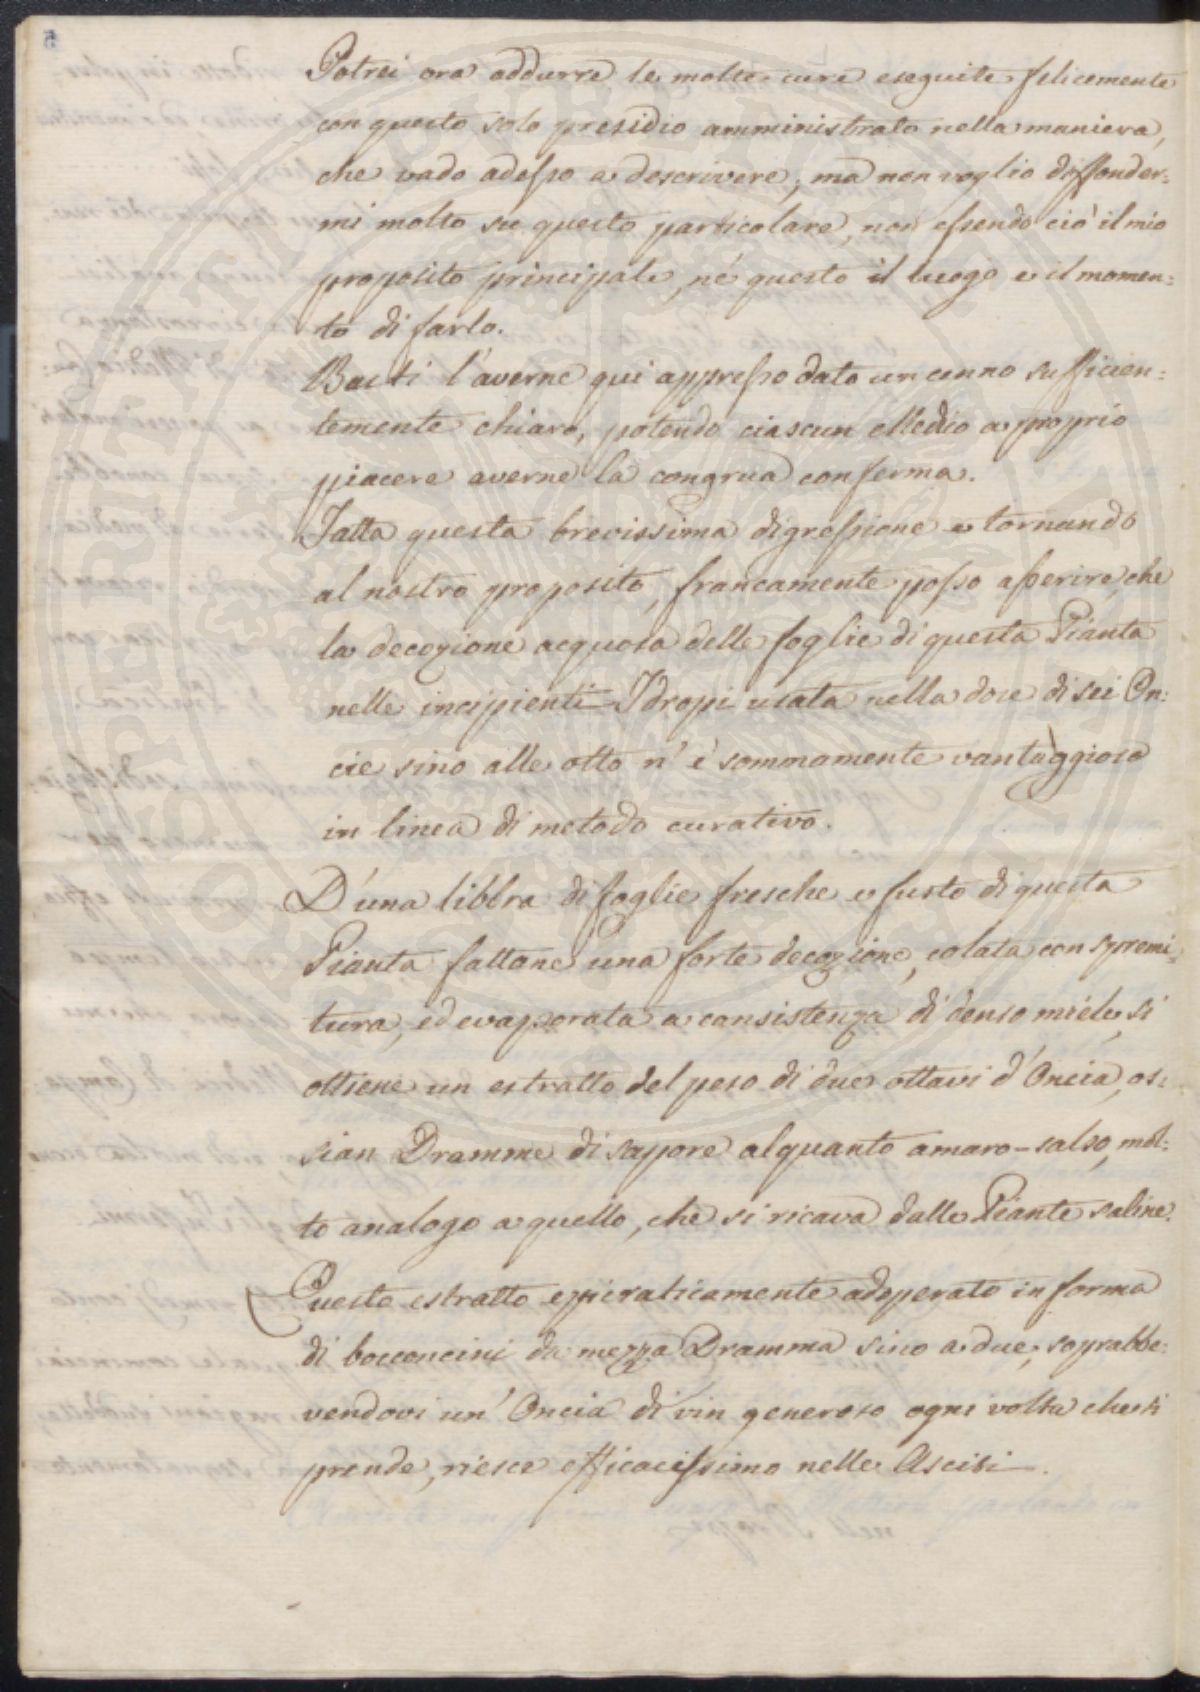 Potrei ora addurre le molte cure eseguite felicemente
con questo solo presidio amministrato nella maniera,
che vado adesso a descrivere; ma non voglio diffonder=
mi molto su questo particolare, non essendo ciò il mio
proposito principale, nè questo il luogo e il momen=
to di farlo.
Basti l'averne qui appresso dato un cenno sufficien=
temente chiaro, potendo ciascun Medico a proprio
piacere averne la congrua conferma.
Fatta questa brevissima digressione e tornando
al nostro proposito, francamente posso asserire, che
la decozione acquosa delle foglie di questa Pianta
nelle incipienti Idropi usata nella dose di sei On=
cie sino alle otto n'è sommamente vantaggiosa
in linea di metodo curativo.
D'una libbra di foglie fresche e fusto di questa
Pianta fattane una forte decozione, colata con spremi=
tura, ed evaporata a consistenza di denso miele, si
ottiene un estratto del peso di due ottavi d'Oncia, os=
sian Dramme di sapore alquanto amaro-salso, mol=
to analogo a quello, che si ricava dalle Piante saline.
Questo estratto epicraticamente adoperato in forma
di bocconcini da mezza Dramma sino a due, soprabbe=
vendovi un'Oncia di vin generoso ogni volta che si
prende, riesce efficacissimo nelle Asciti.